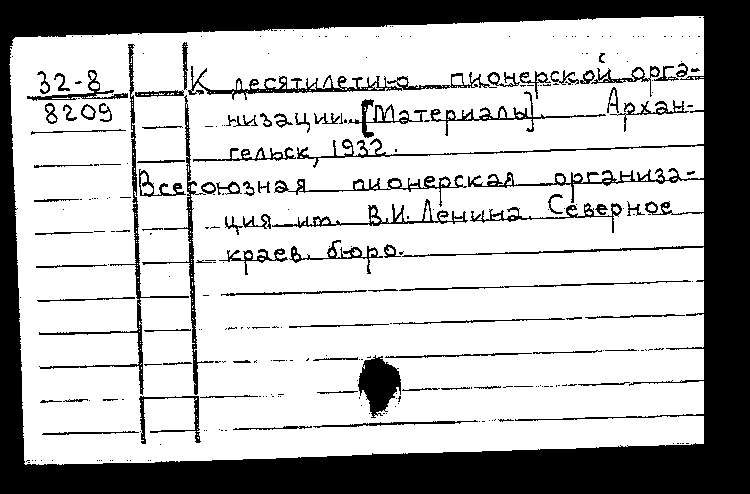 32-8 К десятилетию пионерской орга-
8209 низации... [Материалы]. Архан-
гельск, 1932.
Всесоюзная пионерская организа-
ция им. В.И. Ленина. Северное
краев. бюро.